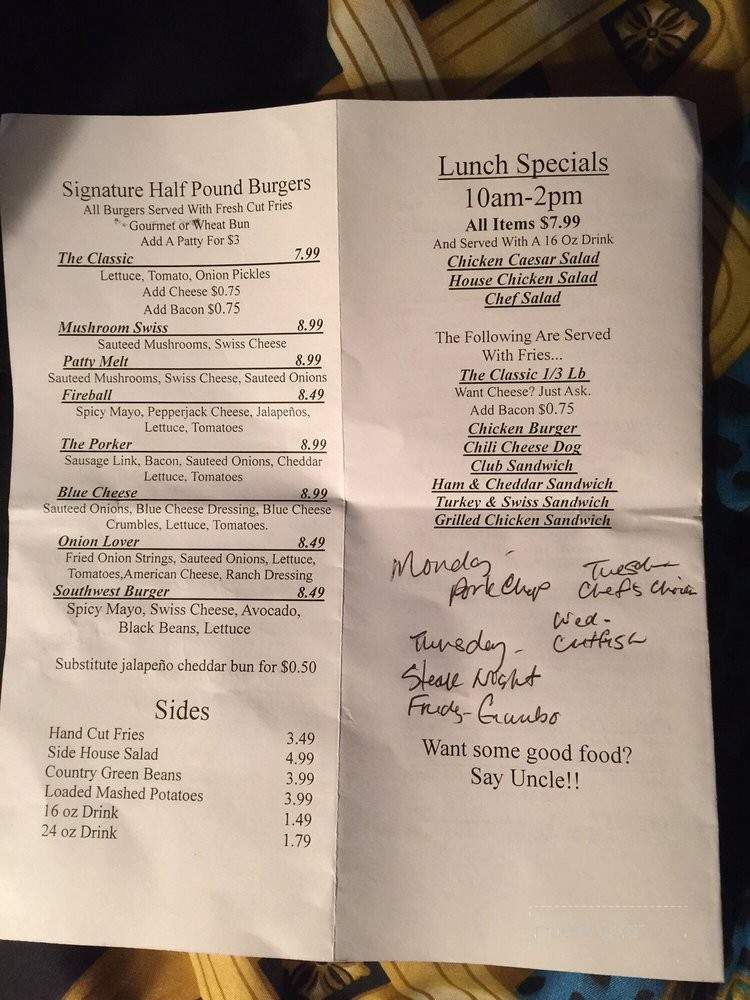 Signature Half Pound Burgers
All Burgers Served With Fresh Cut Fries
Gourmet or Wheat Bun
Add A Patty For $3
The Classic 7.99
Lettuce, Tomato, Onion Pickles
Add Cheese $0.75
Add Bacon $0.75
Mushroom Swiss 8.99
Sauteed Mushrooms, Swiss Cheese
Patty Melt 8.99
Sauteed Mushrooms, Swiss Cheese, Sauteed Onions
Fireball 8.49
Spicy Mayo, Pepperjack Cheese, Jalapeños,
Lettuce, Tomatoes
The Porker 8.99
Sausage Link, Bacon, Sauteed Onions, Cheddar
Lettuce, Tomatoes
Blue Cheese 8.99
Sauteed Onions, Blue Cheese Dressing, Blue Cheese
Crumbles, Lettuce, Tomatoes.
Onion Lover 8.49
Fried Onion Strings, Sauteed Onions, Lettuce,
Tomatoes,American Cheese, Ranch Dressing
Southwest Burger 8.49
Spicy Mayo, Swiss Cheese, Avocado,
Black Beans, Lettuce
Substitute jalapeño cheddar bun for $0.50
Sides
Hand Cut Fries 3.49
Side House Salad 4.99
Country Green Beans 3.99
Loaded Mashed Potatoes 3.99
16 oz Drink 1.49
24 oz Drink 1.79
Lunch Specials
10am-2pm
All Items $7.99
And Served With A 16 Oz Drink
Chicken Caesar Salad
House Chicken Salad
Chef Salad
The Following Are Served
With Fries...
The Classic 1/3 Lb
Want Cheese? Just Ask.
Add Bacon $0.75
Chicken Burger
Chili Cheese Dog
Club Sandwich
Ham & Cheddar Sandwich
Turkey & Swiss Sandwich
Grilled Chicken Sandwich
Monday -
Pork Chop
Tuesday
Chef's Choice
Wed -
Catfish
Thursday -
Steak Night
Friday - Gumbo
Want some good food?
Say Uncle!!